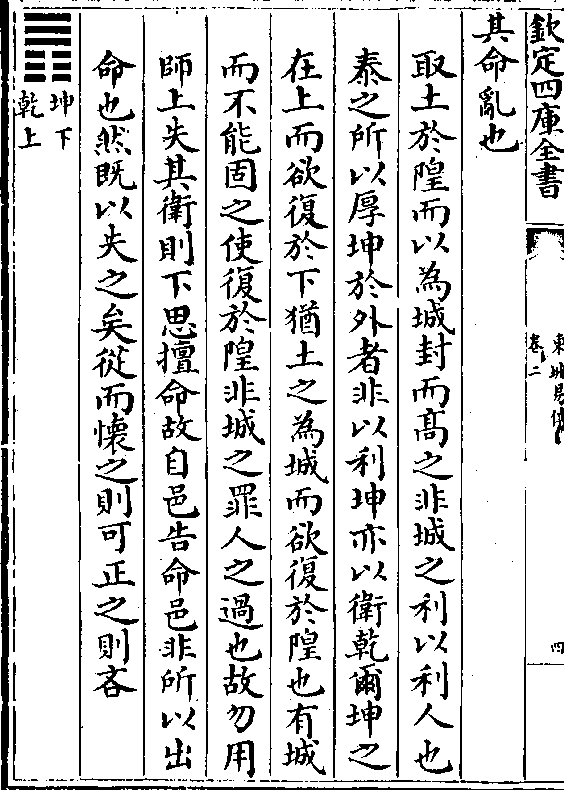 欽定四庫全書
東坡易傳
卷二
四
其命亂也
取土於隍而以為城封而髙之非城之利以利人也
泰之所以厚坤於外者非以利坤亦以衛乾爾坤之
在上而欲復於下猶土之為城而欲復於隍也有城
而不能固之使復於隍非城之罪人之過也故勿用
師上失其衛則下思擅命故自邑告命邑非所以出
命也然既以失之矣從而懷之則可正之則吝
坤下
乾上